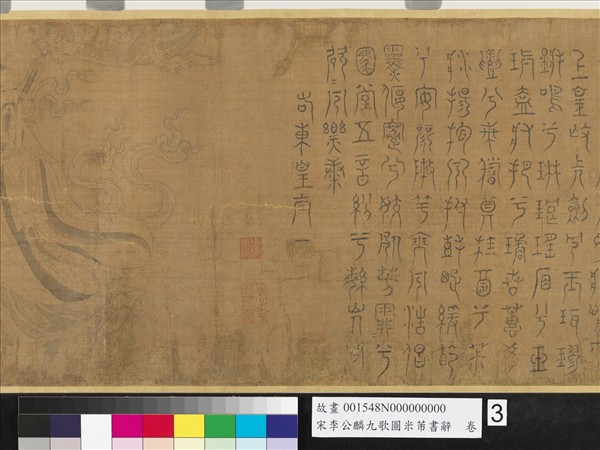 上皇撫長劍兮玉珥璆
鏘鳴兮琳琅瑤席兮玉
瑱盍將把兮瓊芳蕙肴
蒸兮蘭藉奠桂酒兮椒
漿揚枹兮拊鼓疏緩節
兮安歌陳竽瑟兮浩倡
靈偃蹇兮姣服芳菲菲兮
滿堂五音紛兮繁會君
欣欣兮樂康
右東皇太一
故畫 001548N000000000
宋李公麟九歌圖米芾書辭 卷
3